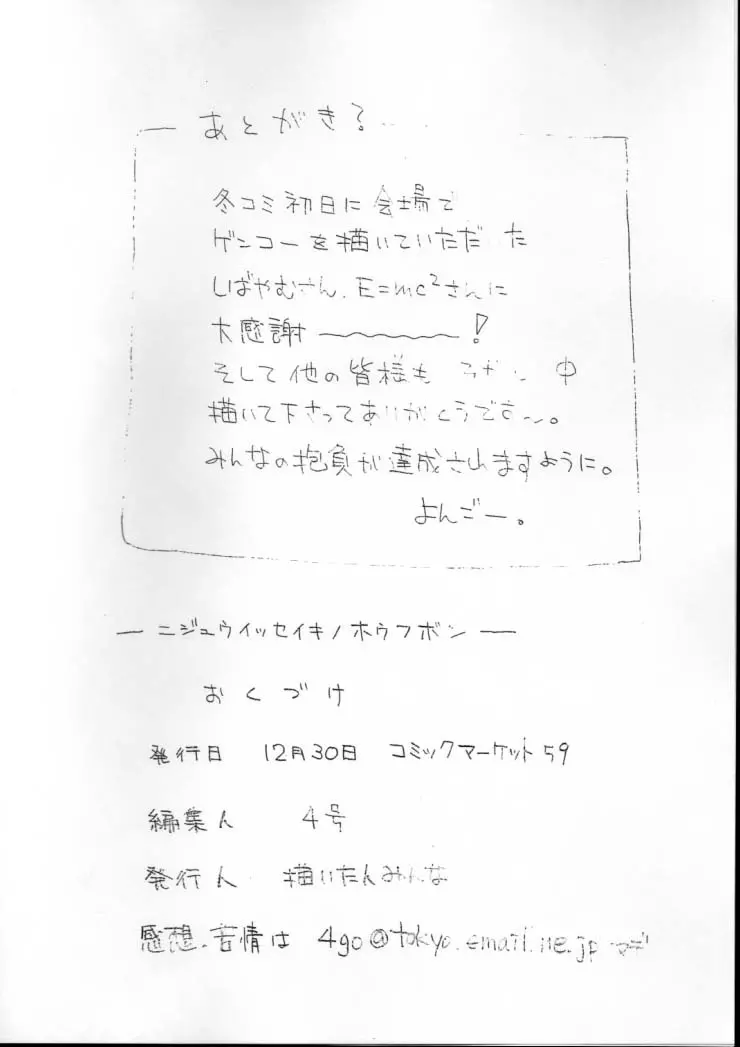 あとがき?
冬コミ初日に会場で
ゲンコーを描いていただ た
しばやむさん、E=mc²さんに
大感謝〜〜〜!
そして他の皆様も 中
描いて下さってありがとうです〜。
みんなの抱負が達成されますように。
よんごー。
— ニジュウイッセイキノホウフボン —
おくづけ
発行日 12月30日 コミックマーケット59
編集人 4号
発行人 描いたんみんな
感想、苦情は 4go@tokyo.email.ne.jp マデ